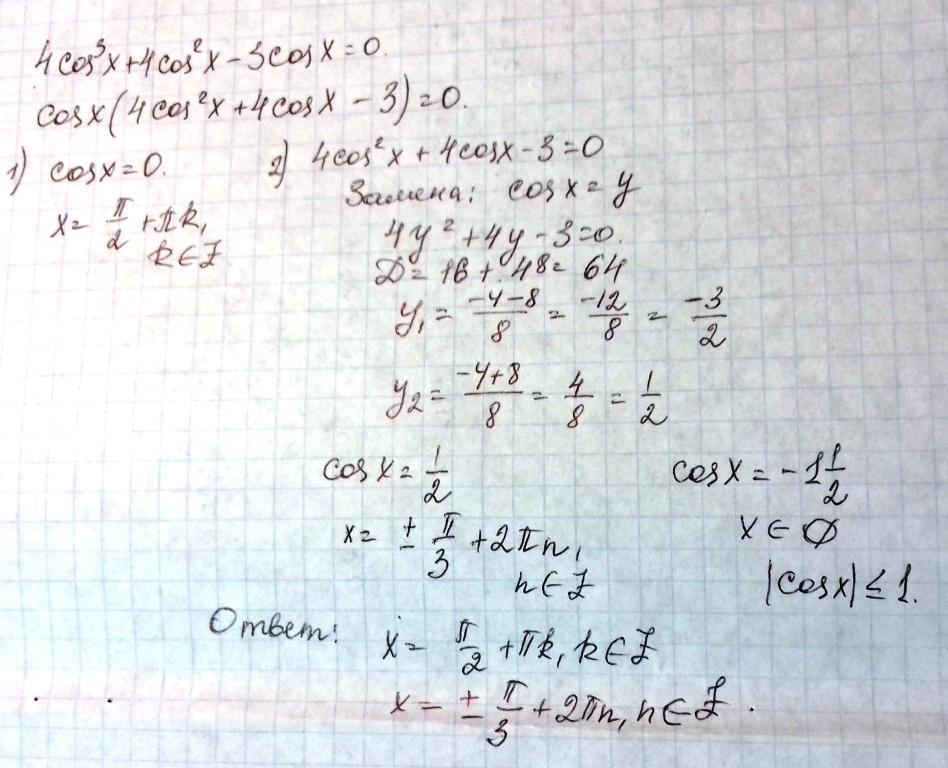 4cos³x+4cos²x-3cosx=0.
cosx(4cos²x+4cosx-3)=0.
1) cosx=0.
x= π/2 +πk,
k∈Z
2) 4cos²x+4cosx-3=0
Замена: cosx=y
4y²+4y-3=0.
D=16+48=64
y₁= (-4-8)/8 = -12/8 = -3/2
y₂= (-4+8)/8 = 4/8 = 1/2
cosx= 1/2
x= ± π/3 +2πn,
n∈Z
cosx=-1 1/2
x∈∅
|cosx|≤1.
Ответ: x= π/2 +πk, k∈Z
x= ± π/3 +2πn, n∈Z.